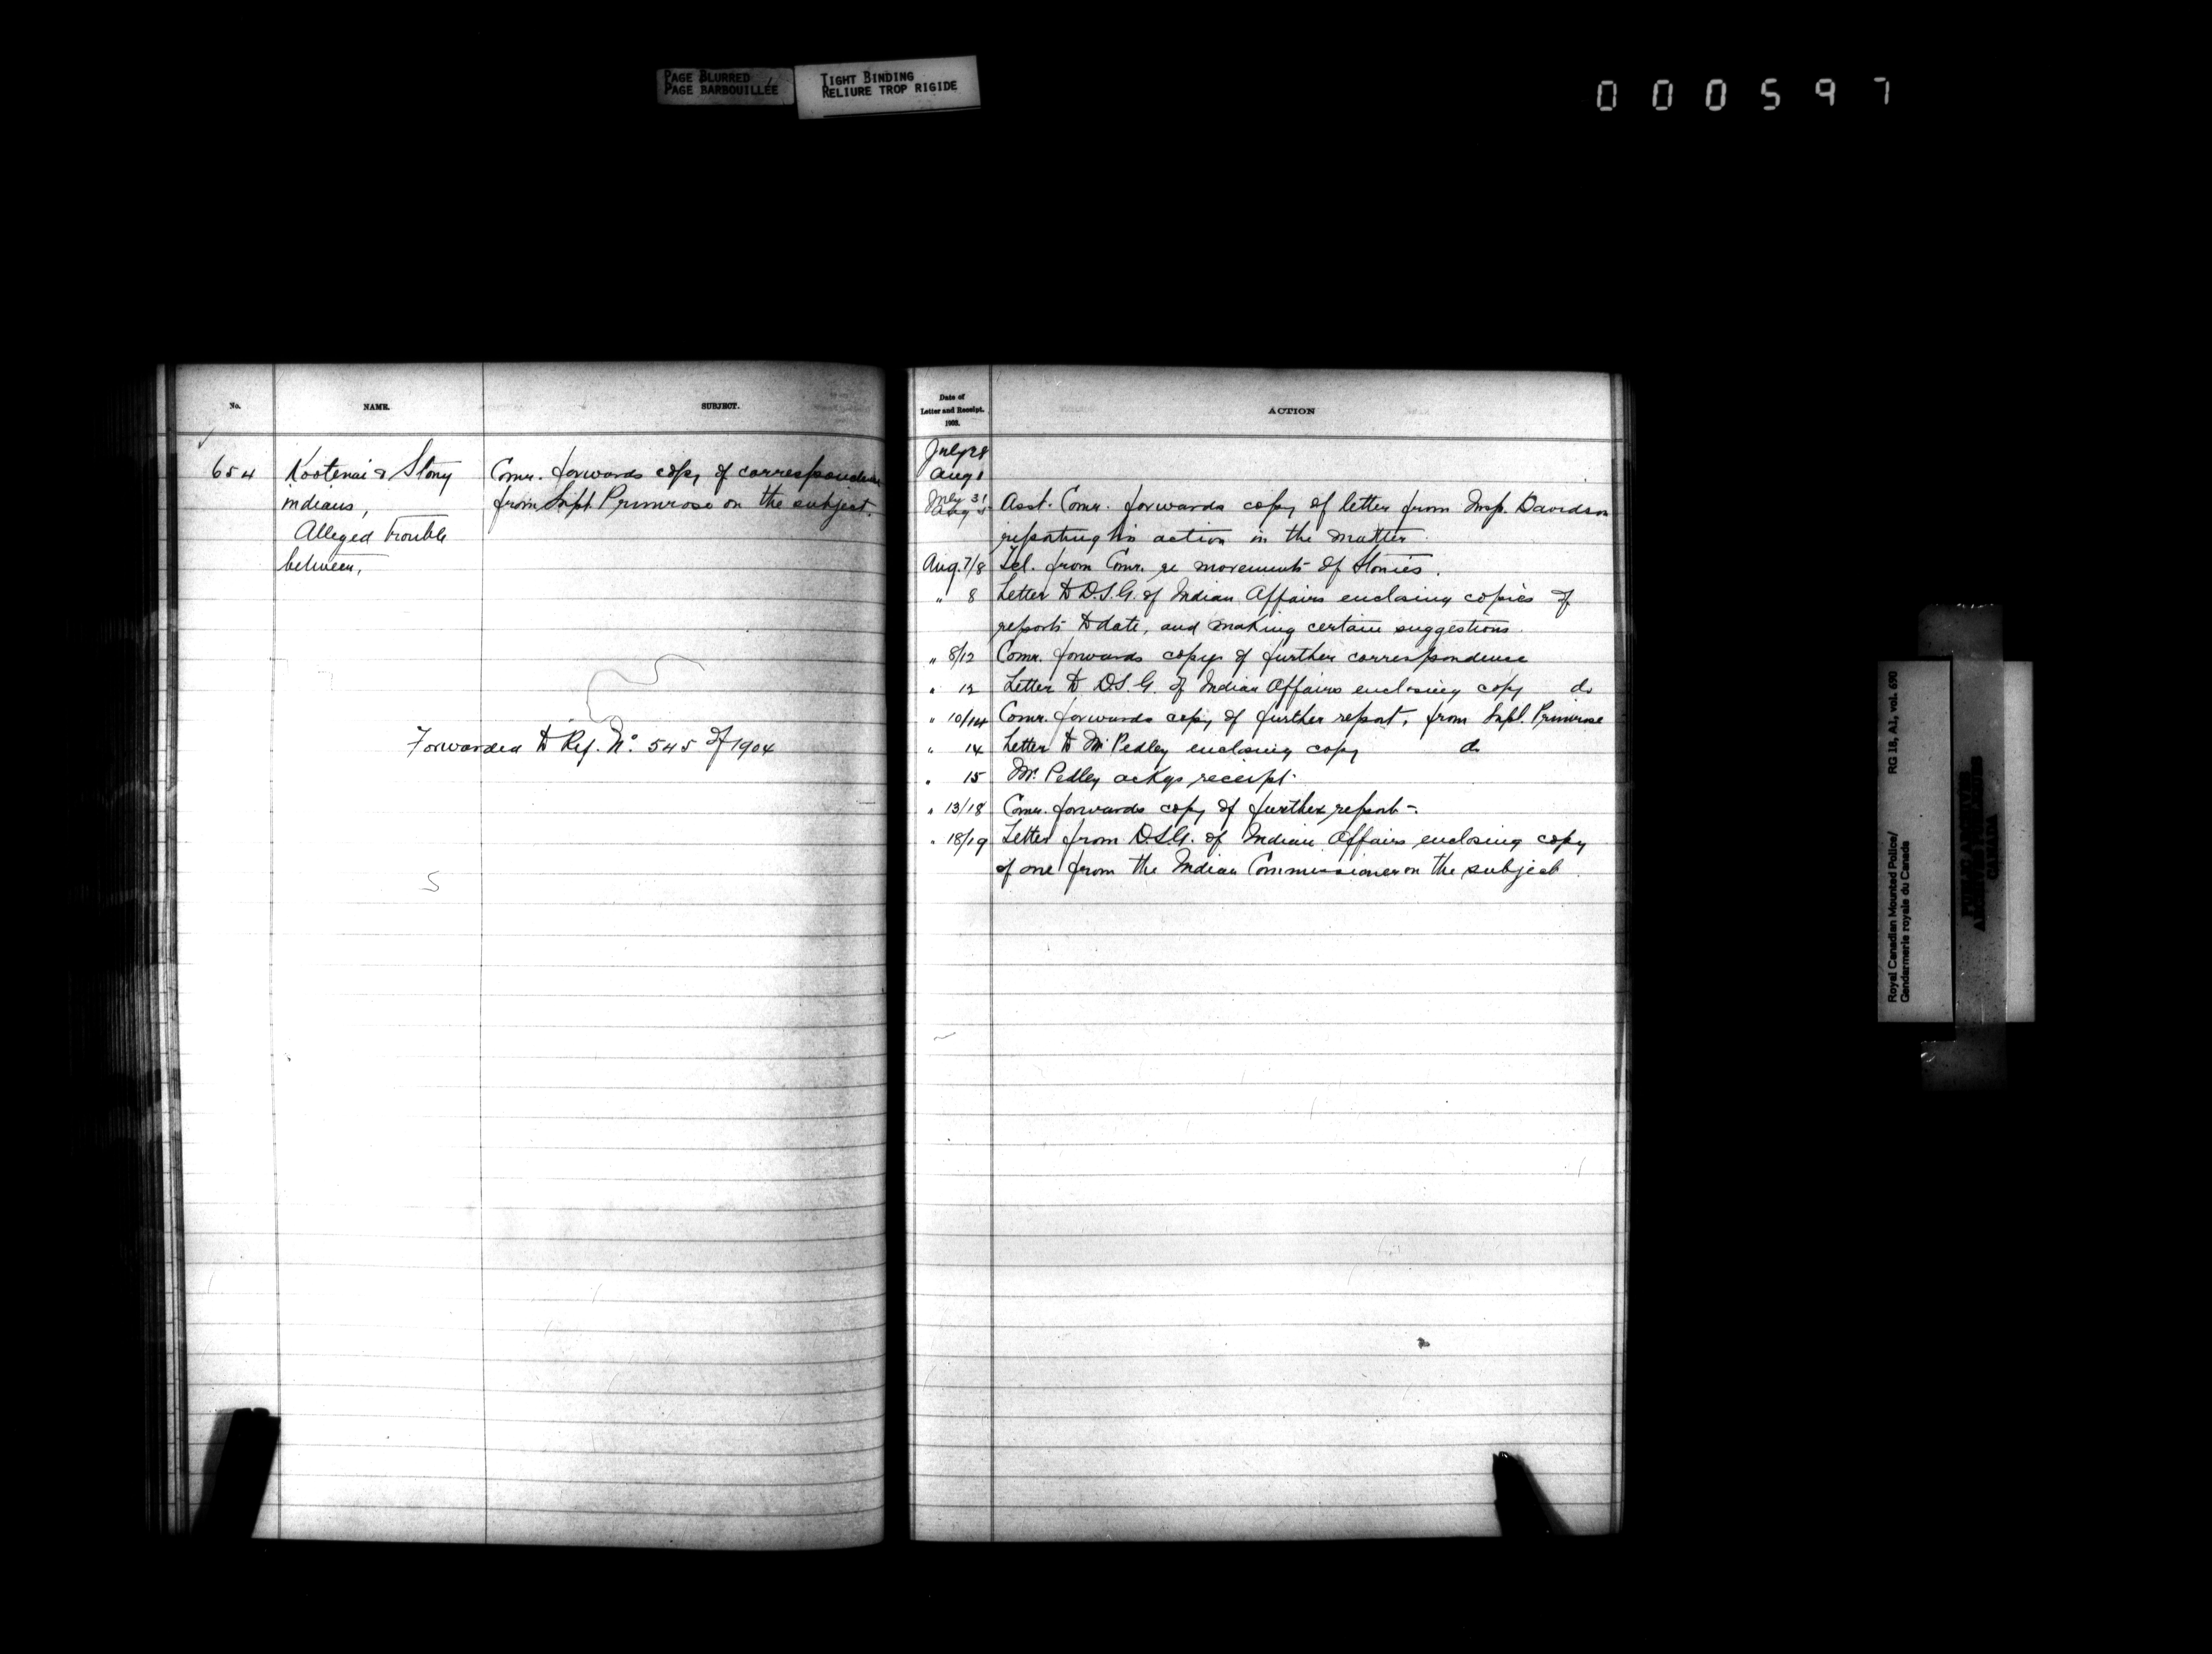 PAGE BLURRED
PAGE BARBOUILLÉE
TIGHT BINDING
RELIURE TROP RIGIDE
000597
No.
NAME.
SUBJECT.
654
Kootenai & Stony
indians,
Alleged trouble
between,
Comr. forwards copy of correspondence
from Supt. Primrose on the subject.
Forwarded to Ref. No. 545 of 1904
5
Date of
Letter and Receipt.
1903.
ACTION
July 28
Aug 1
July 31
Aug Asst. Comr. forwards copy of letter from Insp. Davidson
reporting his action in the matter.
Aug. 7/8 Tel. from Comr. re movements of Stonies.
" 8 Letter to D.S.G. of Indian Affairs enclosing copies of
reports to date, and making certain suggestions.
" 8/12 Comr. forwards copy of further correspondence
" 12 Letter to D.S.G. of Indian Affairs enclosing copy do
" 10/14 Comr. forwards copy of further report, from Supt. Primrose
" 14 Letter to Mr Pedley enclosing copy do
" 15 Mr. Pedley ackgs receipt.
" 13/18 Comr. forwards copy of further report.
" 18/19 Letter from D.S.G. of Indian Affairs enclosing copy
of one from the Indian Commissioner on the subject.
Royal Canadian Mounted Police/
Gendarmerie royale du Canada
RG 18, A1, vol. 690
PUBLIC ARCHIVES
ARCHIVES PUBLIQUES
CANADA